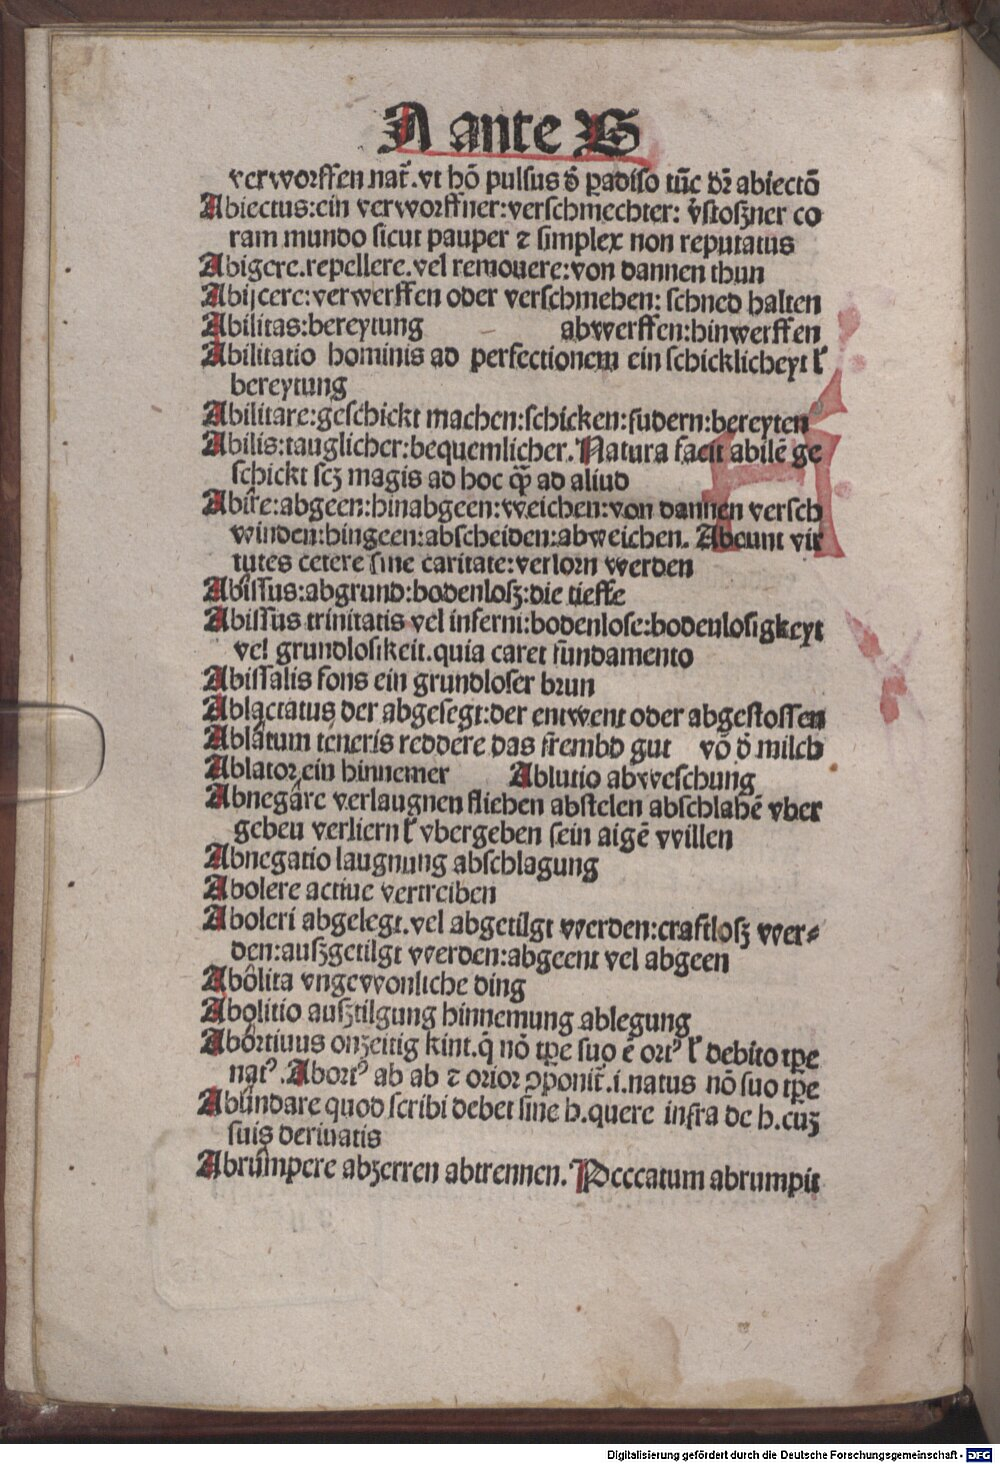 A ante B
verworffen nat̃. vt hō pulsus d̄ ꝑadiso tūc dr̄ abiectō
Abiectus: ein verworffner: verschmechter: v̄stoßner co
ram mundo sicut pauper ⁊ simplex non reputatus
Abigere. repellere. vel remouere: von dannen thun
Abijcere: verwerffen oder verschmehen: schned halten
Abilitas: bereytung abwerffen: hinwerffen
Abilitatio hominis ad perfectionem ein schicklicheyt
bereytung
Abilitare: geschickt machen: schicken: fudern: bereyten
Abilis: tauglicher: bequemlicher. Natura facit abilē ge
schickt scꝫ magis ad hoc qȝ̄ ad aliud
Abire: abgeen: hinabgeen: weichen: von dannen versch
winden: hingeen: abscheiden: abweichen. Abeunt vir
tutes cetere sine caritate: verlorn werden
Abissus: abgrund: bodenloß: die tieffe
Abissus trinitatis vel inferni: bodenlose: bodenlosigkeyt
vel grundlosikeit. quia caret fundamento
Abissalis fons ein grundloser brun
Ablactatus der abgesegt: der entwent oder abgestossen
Ablâtum teneris reddere das frembd gut vō d̄ milch
Ablator ein hinnemer Ablutio abweschung
Abnegâre verlaugnen fliehen abstelen abschlahē vber
gebeu verliern ł vbergeben sein aigē willen
Abnegatio laugnung abschlagung
Abolere actiue vertreiben
Aboleri abgelegt. vel abgetilgt werden: craftloß wer⸗
den: außgetilgt werden: abgeent vel abgeen
Abôlita vngewonliche ding
Abolitio außtilgung hinnemung ablegung
Abôrtiuus onzeitig kint. q̄ nō tꝑe suo ē ortꝰ ł debito tꝑe
natꝰ. Abortꝰ ab ab ⁊ orior ꝓponit̃. i. natus nō suo tꝑe
Abûndare quod scribi debet sine h. quere infra de h. cuꝫ
suis deriuatis
Abrûmpere abzerren abtrennen. Peccatum abrumpit
Digitalisierung gefördert durch die Deutsche Forschungsgemeinschaft - DFG